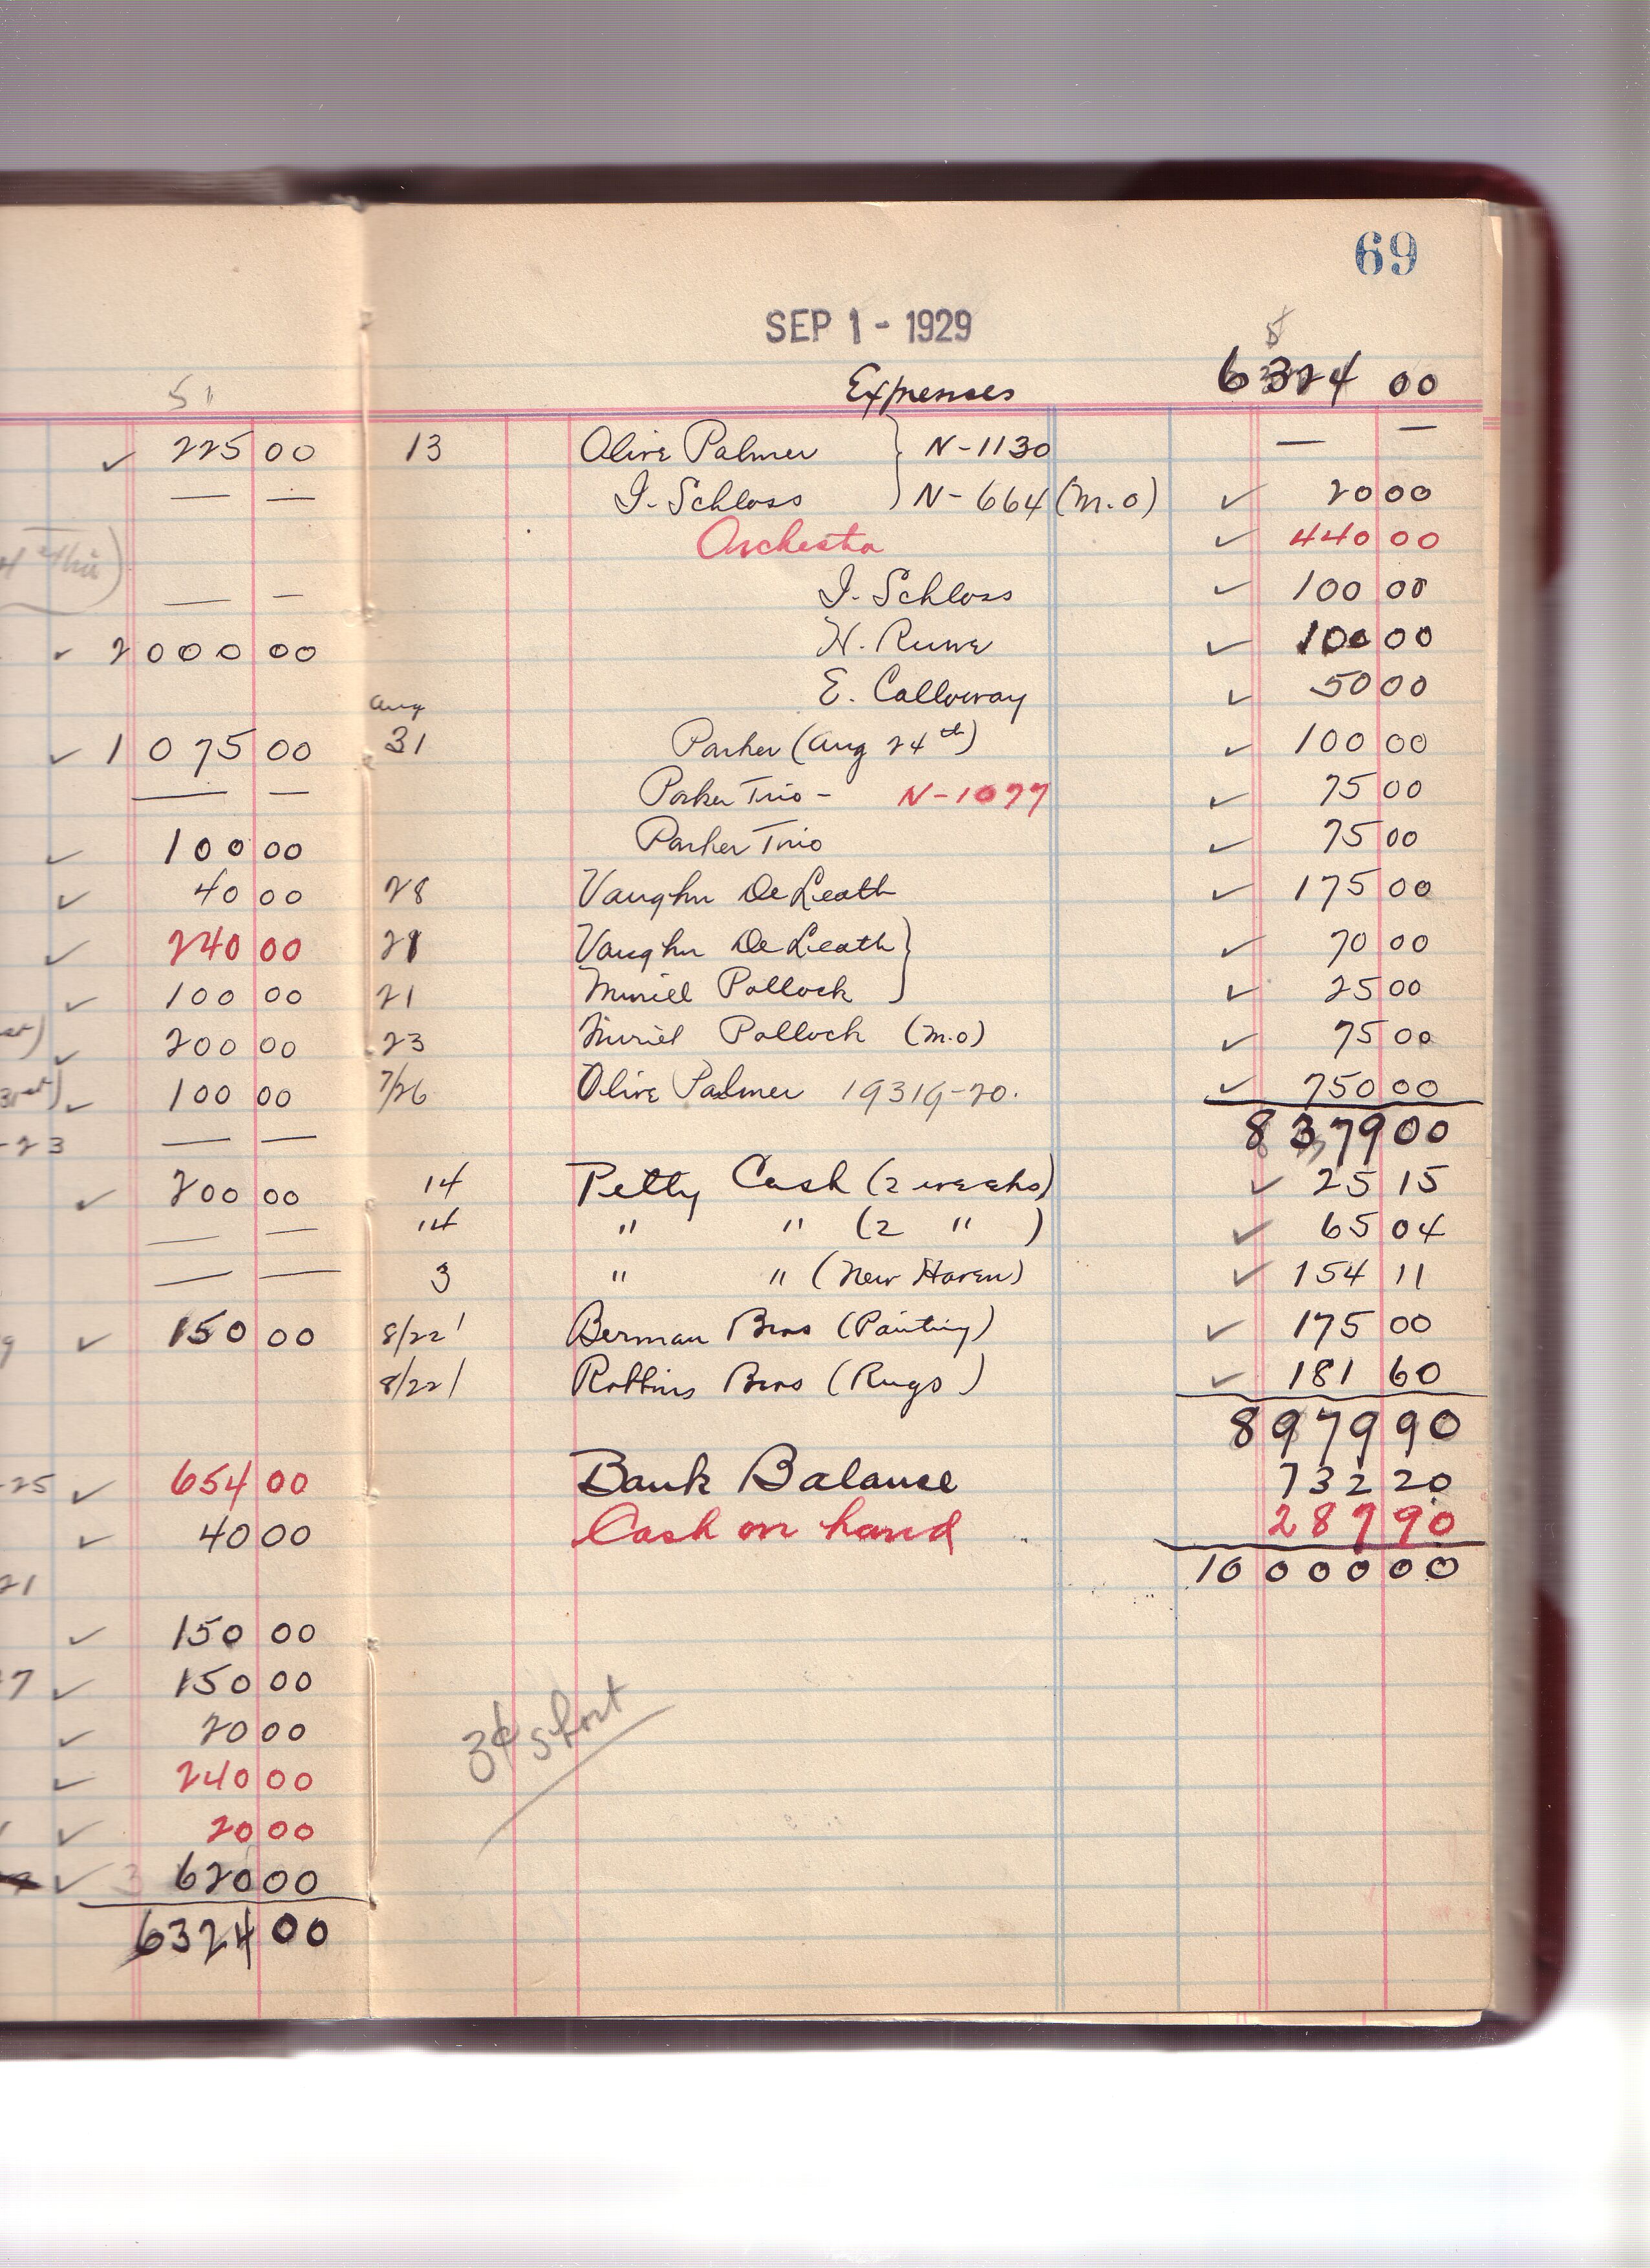 51
225 00
— —
— —
2000 00
1075 00
— —
100 00
40 00
240 00
100 00
200 00
100 00
-23 — —
200 00
— —
— —
150 00
-25 654 00
40 00
21
150 00
7 150 00
20 00
240 00
20 00
620 00
6324 00
69
SEP 1 - 1929
5
Expenses 6324 00
13 Olive Palmer } N-1130 — —
I. Schloss } N-664 (M.O) 20 00
Orchestra 440 00
I. Schloss 100 00
H. Ruwe 100 00
E. Calloway 50 00
Aug
31 Parker (Aug 24th) 100 00
Parker Trio - N-1077 75 00
Parker Trio 75 00
28 Vaughn De Leath 175 00
28 Vaughn De Leath } 70 00
21 Muriel Pollock } 25 00
23 Muriel Pollock (M.O) 75 00
7/26 Olive Palmer 19319-20. 750 00
8379 00
14 Petty Cash (2 weeks) 25 15
14 " " (2 " ) 65 04
3 " " (New Haven) 154 11
8/22 Berman Bros (Painting) 175 00
8/22 Robbins Bros (Rugs) 181 60
8979 90
Bank Balance 732 20
Cash on hand 287 90
10000 00
3¢ short